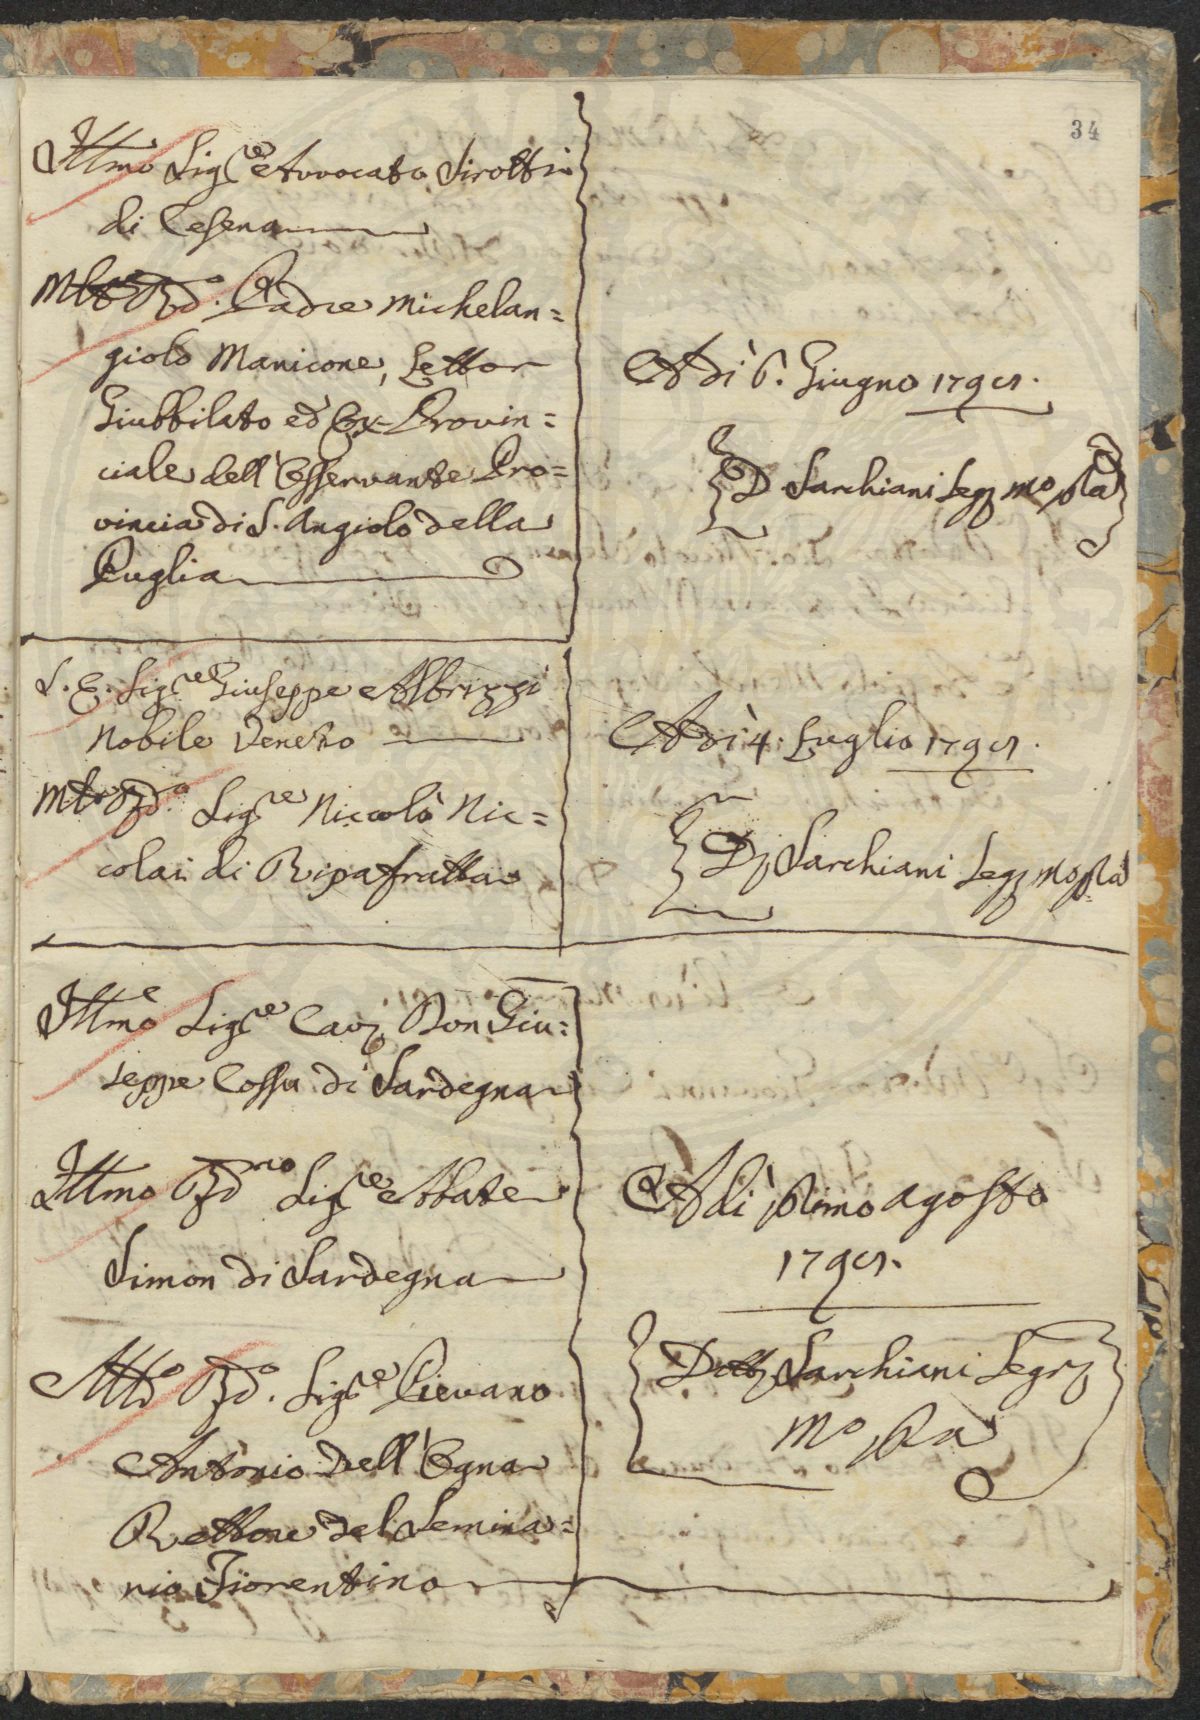 34
Illmo Sig.re Avvocato Sirotti
di Cesena
Mto Rdo. Padre Michelan=
giolo Manicone, Lettor
Giubbilato ed Ex-Provin=
ciale dell'Osservante Pro=
vincia di S. Angiolo della
Puglia
A di 6. Giugno 1791.
D Sarchiani Seg mo ppa
S. E. Sig.re Giuseppe Albrizzi
Nobile Veneto
Mto Rdo. Sig.re Niccolò Nic=
colai di Ripafratta
A di 4. Luglio 1791.
D Sarchiani Seg mo ppa
Illmo Sig.re Cav Don Giu=
seppe Cossu di Sardegna
Illmo Rdmo Sig.re Abbate
Simon di Sardegna
Mto Rdo. Sig.re Pievano
Antonio Dell'Ogna
Rettore del Semina=
rio Fiorentino
A di primo agosto
1791.
Dott Sarchiani Segr
mo ppa